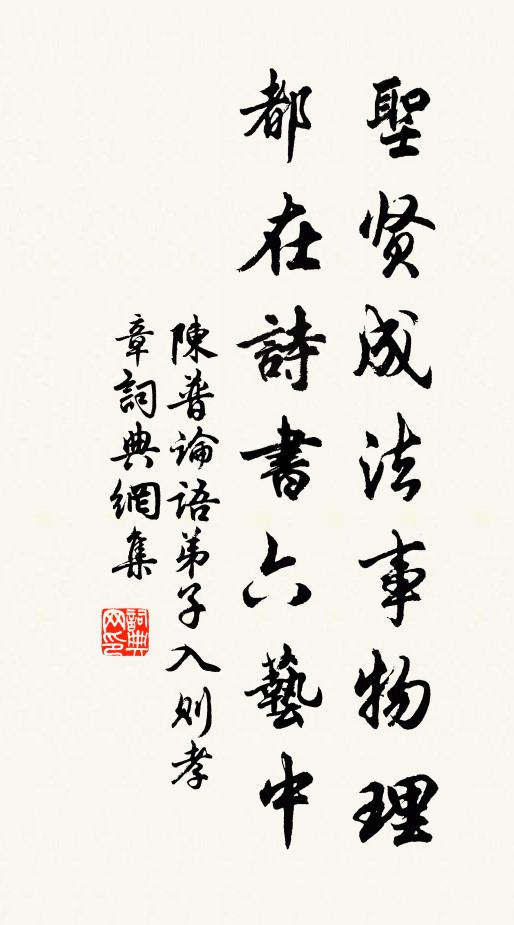 聖贤成法事物理
都在詩書六藝中
陳普論語弟子入则孝
章詞典網集
詞典网印